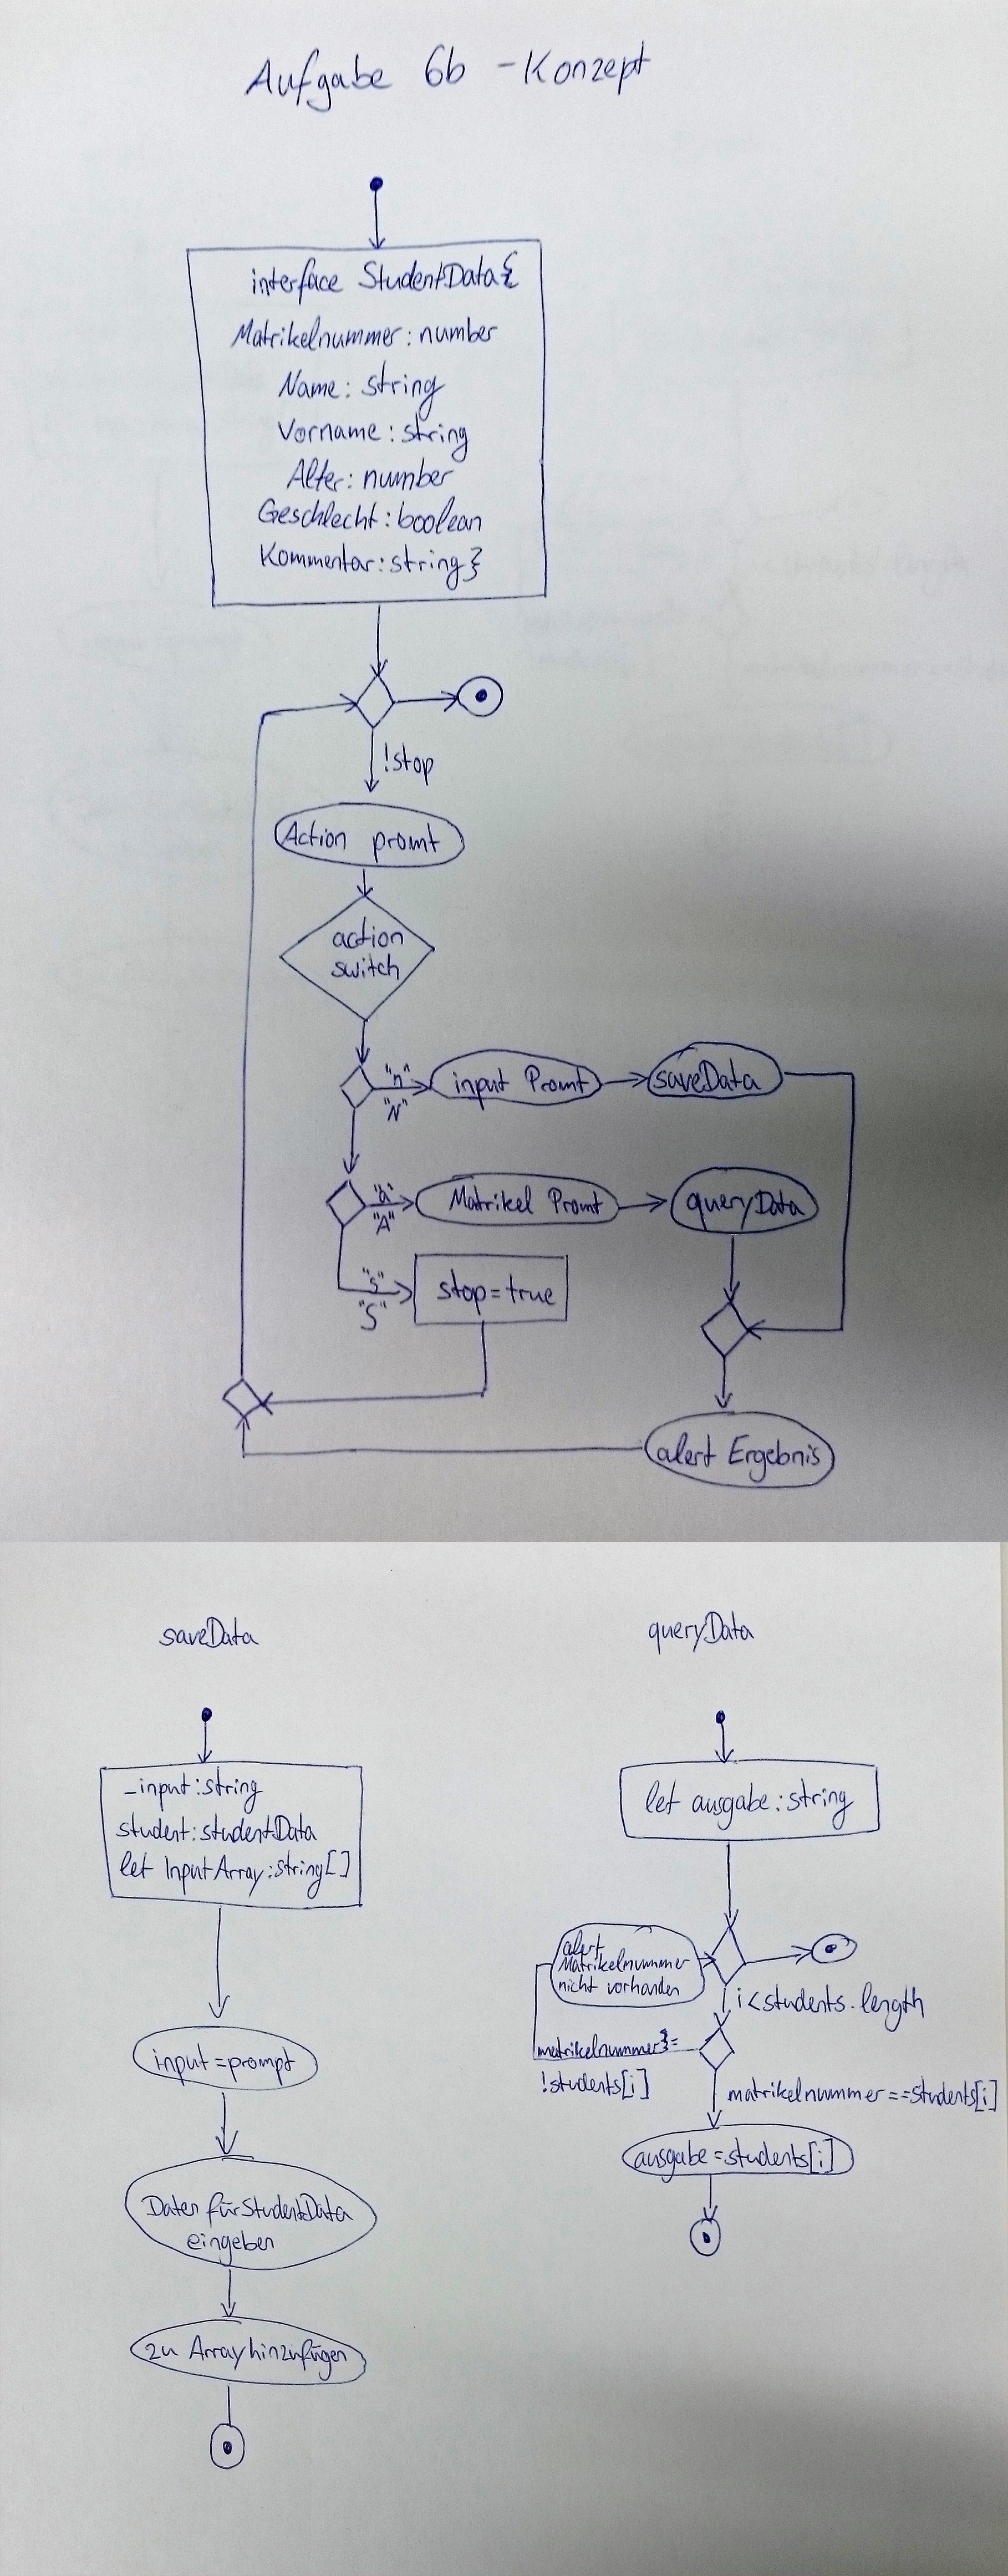 Aufgabe 6b - Konzept
interface StudentData{
Matrikelnummer: number
Name: string
Vorname: string
Alter: number
Geschlecht: boolean
Kommentar: string}
!stop
Action promt
action
switch
"n"
"N"
input Promt
saveData
"a"
"A"
Matrikel Promt
queryData
"s"
"S"
stop=true
alert Ergebnis
saveData
_input:string
student:studentData
let InputArray:string[]
input=prompt
Daten für StudentData
eingeben
zu Array hinzufügen
queryData
let ausgabe:string
alert
Matrikelnummer
nicht vorhanden
i<students.length
matrikelnummer
!students[i]
matrikelnummer==students[i]
ausgabe=students[i]